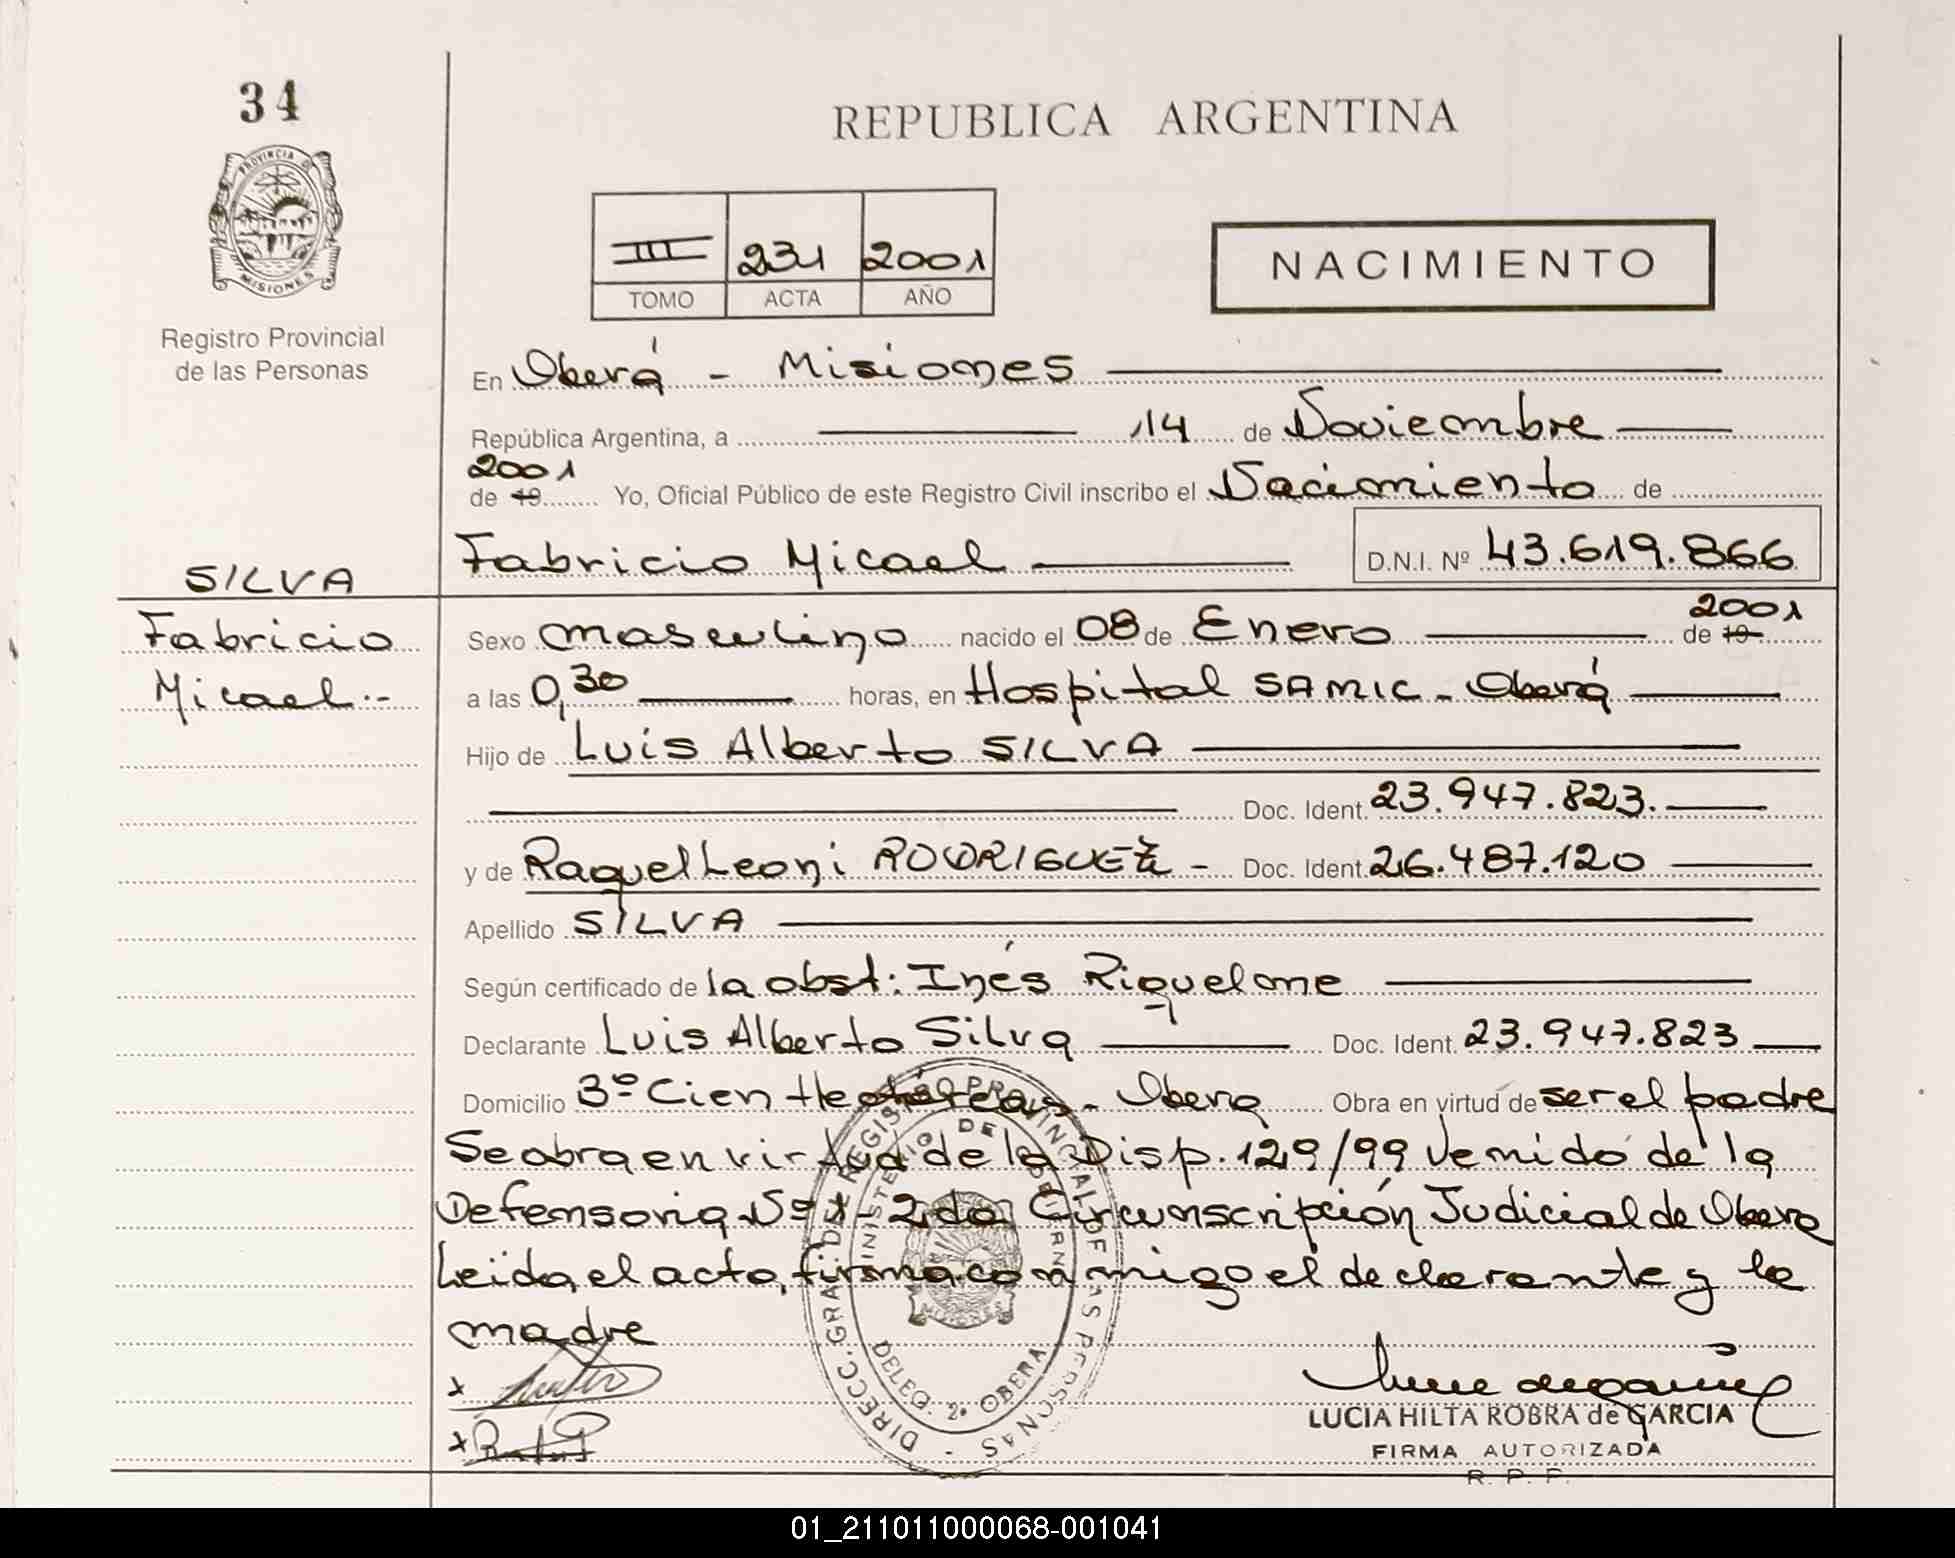 34
REPUBLICA ARGENTINA
PROVINCIA DE
MISIONES
Registro Provincial
de las Personas
III 231 2001
TOMO ACTA AÑO
NACIMIENTO
En Oberá - Misiones
República Argentina, a 14 de Noviembre
2001
de 19 Yo, Oficial Público de este Registro Civil inscribo el Nacimiento de
Fabricio Micael D.N.I. Nº 43.619.866
SILVA
Fabricio
Micael.-
2001
Sexo masculino nacido el 08 de Enero de 19
a las 0,30 horas, en Hospital SAMIC - Oberá
Hijo de Luis Alberto SILVA
Doc. Ident. 23.947.823.
y de Raquel Leoni RODRIGUEZ - Doc. Ident. 26.487.120
Apellido SILVA
Según certificado de la obst: Inés Riquelme
Declarante Luis Alberto Silva Doc. Ident. 23.947.823
Domicilio 3º Cien Hectáreas - Obera Obra en virtud de ser el padre
Se obra en virtud de la Disp. 129/99 venido de la
Defensoria Nº 1 - 2da Circunscripción Judicial de Obera
Leida el acta, firma conmigo el declarante y la
madre
x
x
DIRECC. GRAL. DEL REGISTRO PROVINCIAL DE LAS PERSONAS
MINISTERIO DE GOBIERNO
MISIONES
DELEG. 2ª OBERA
LUCIA HILTA ROBRA de GARCIA
FIRMA AUTORIZADA
R. P. P.
01_211011000068-001041